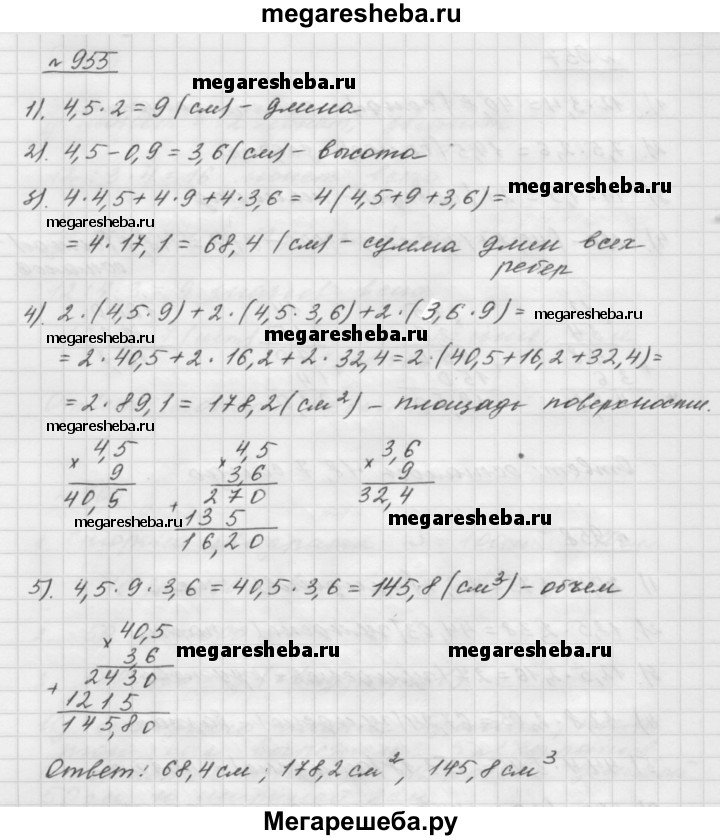 megaresheba.ru
№ 955
megaresheba.ru
1). 4,5·2=9 (см) - длина
2). 4,5-0,9=3,6(см) - высота
3). 4·4,5+4·9+4·3,6=4(4,5+9+3,6)=
megaresheba.ru
megaresheba.ru
=4·17,1=68,4 (см) - сумма длин всех
ребер
4). 2·(4,5·9)+2·(4,5·3,6)+2·(3,6·9)=
megaresheba.ru
megaresheba.ru
megaresheba.ru
=2·40,5+2·16,2+2·32,4=2·(40,5+16,2+32,4)=
=2·89,1=178,2(см²) - площадь поверхности.
megaresheba.ru
× 4,5 × 4,5 × 3,6
9 3,6 9
40,5 + 270 32,4
megaresheba.ru
135
megaresheba.ru
16,20
5). 4,5·9·3,6=40,5·3,6=145,8(см³) - объем
× 40,5
3,6
megaresheba.ru
megaresheba.ru
+ 2430
1215
145,80
Ответ: 68,4см; 178,2см², 145,8см³
megaresheba.ru
Мегарешеба.ру